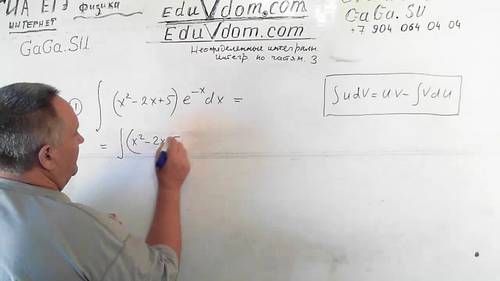 ЕГЭ физика
ИНТЕРНЕТ
GaGa.SU
EduVdom.com
EduVdom.com
Неопределенные интегралы
Интегр. по частям. 3
GaGa.SU
+7 904 064 04 04
1) ∫ (x²-2x+5) e⁻ˣ dx =
= ∫(x²-2x
∫udv = uv - ∫vdu